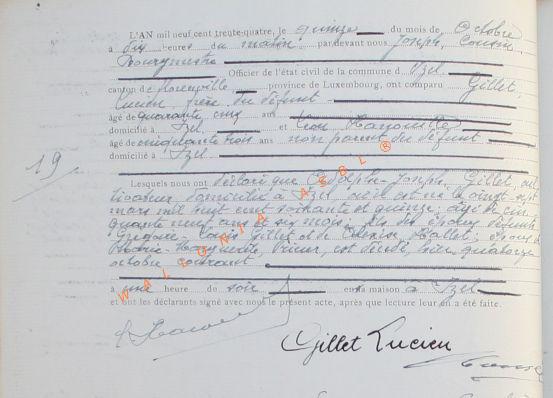 L'AN mil neuf cent trente-quatre, le quinze du mois de Octobre
à dix heures du matin, pardevant nous Joseph, Cousin
Bourgmestre
Officier de l'état civil de la commune d'Izel
canton de Florenville province de Luxembourg, ont comparu Gillet,
Lucien, frère du défunt
âgé de quarante cinq ans
domicilié à Izel, et Léon
âgé de cinquante trois ans non parent du défunt
domicilié à Izel
19
Lesquels nous ont déclaré que Adolphe-Joseph, Gillet,
domicilié à Izel, où il est né le vingt-sept
mars mil huit cent soixante et quinze, âgé de cin
quante neuf ans et six mois, fils de époux défunts
Gillet et de Hallet; époux de
Marie est décédé, hier, quatorze
octobre courant
à une heure du soir en sa maison à Izel
et ont les déclarants signé avec nous le présent acte, après que lecture leur en a été faite.
WALLONIA ASBL ®
Gillet Lucien